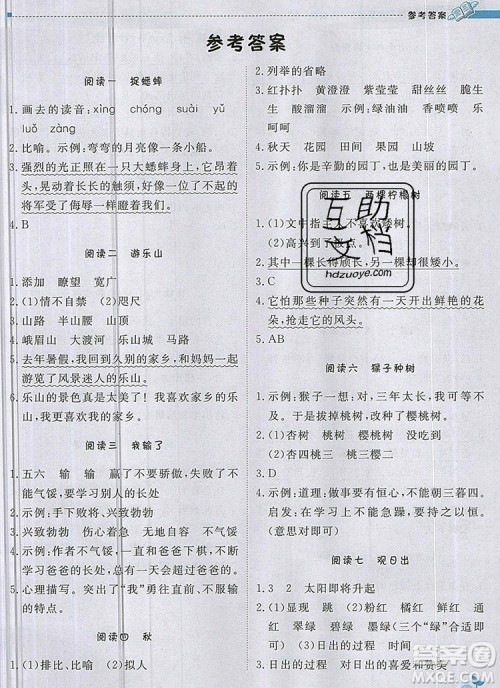 参考答案
参考答案
阅读一 捉蟋蟀
1. 画去的读音：xìng chóng suài yǔ
luǒ zàng
2. 比喻。示例：弯弯的月亮像一条小船。
3. 强烈的光正照在大蟋蟀身上，它昂着
头，晃动着长长的触须，好像一位了不起的
将军受了侮辱一样蹬着大腿。
4. B
阅读二 游乐山
1. 添加 瞭望 宽广
2. (1)情不自禁 (2)咫尺
3. 山路 半山腰 山顶
4. 峨眉山 大渡河 乐山城 青衣江
5. 去年暑假，我回到久别的家乡，和家人一起
游览了风景迷人的乐山。
6. 乐山的景色真是太美了！我更喜欢我的家
乡，更喜欢我家乡的人。
阅读三 我输了
1. 五六 输 输 赢了不要骄傲，输了不
能气馁，要学习别人的长处
2. 示例：手下败将 兴致勃勃
3. 兴致勃勃 激动 自信 不气馁
4. 示例：生气勃勃 兴冲冲
5. 心理描写，突出了“我”骄傲、不服输
的特点。
阅读四 秋
1. (1)排比、比喻 (2)拟人
2. 列举的省略
3. 红扑扑 黄澄澄 紫莹莹 甜丝丝 脆生
生 酸溜溜 示例：绿油油 香喷喷 乐
呵呵
4. 秋天 花园 田间 果园 山坡
5. 示例：你是辛勤的园丁，也是美丽的园丁。
阅读五 两棵柠檬树
1. (1)文中指主人不
(2)高兴到了
2. 其中一棵长得颀长，另一棵却又矮又小。
3. C
4. 它怕那些种子突然有一天开出鲜艳的花
朵，抢走它的风头。
5. AB
阅读六 猴子种树
1. 示例：猴子一想：对，三年太长，我可等不
及！于是拔掉梨树，改种杏树。
2. (1)杏树 桃树 樱桃树 都没种成
(2)杏四桃三 樱三
3. D
4. 示例：道理：做事要有恒心，要持之以恒。
启发：在学习上不能急躁，要持之以恒。
(意思对即可)
阅读七 观日出
1. 3 2 太阳即将升起
2. (1)显现 跳跃 (2)粉红 鲜红 通红
翠绿 碧绿 墨绿
3. 日出的过程 对日出的喜爱和赞美
互助
文档
hdzuoye.com